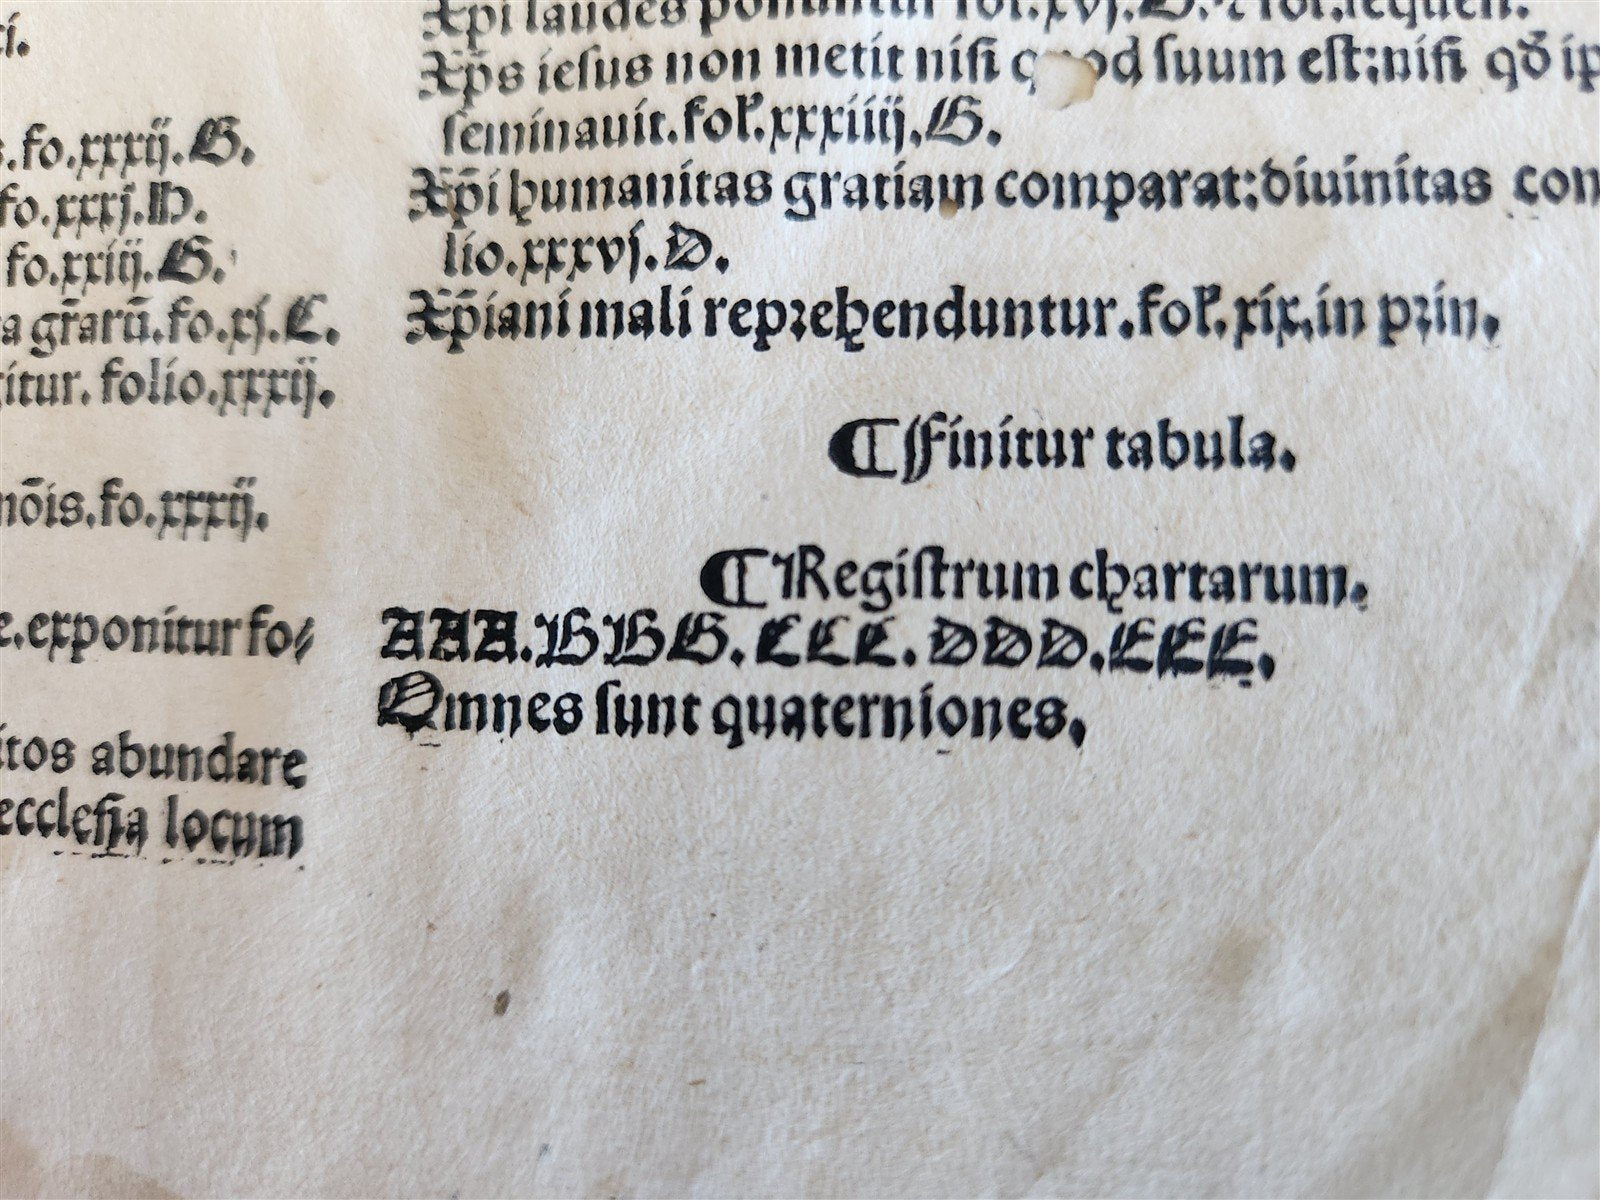 i.
fo.xxxij.G.
fo.xxxj.D.
fo.xxiij.G.
a gr̄arū.fo.xj.C.
itur. folio.xxxij.
nōis.fo.xxxij.
e.exponitur fo⸗
itos abundare
ecclesia locum
Xp̄i laudes ponuntur fol.xvj.D.⁊ fol.sequen.
Xp̄s iesus non metit nisi quod suum est:nisi qđ ip
seminauit.fol'.xxxiiij.G.
Xp̄i humanitas gratiam comparat:diuinitas con
lio.xxxvj.D.
Xp̄iani mali reprehenduntur.fol'.xix.in prin.
¶Finitur tabula.
¶Registrum chartarum.
AAA.BBG.CCC.DDD.EEE.
Omnes sunt quaterniones.